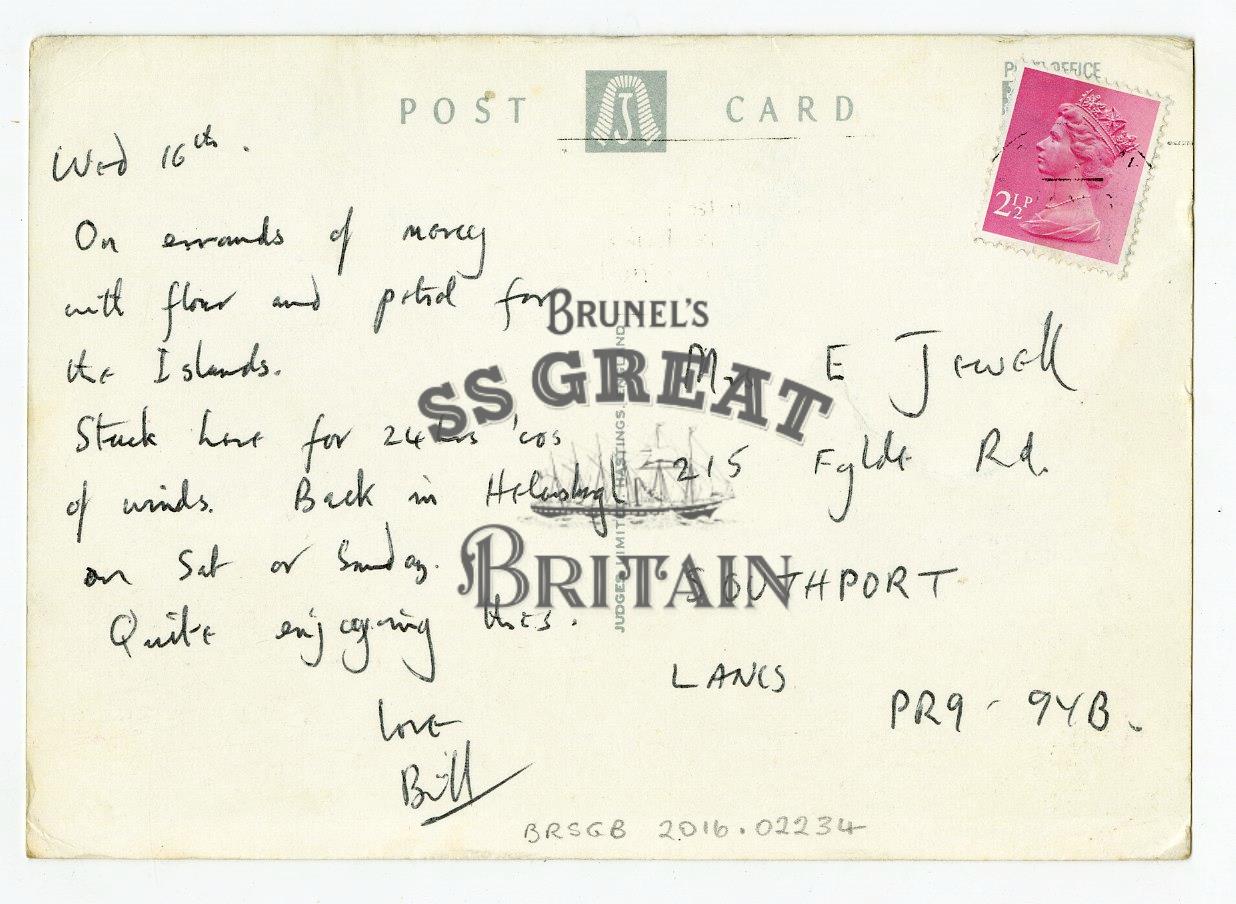 POST CARD
POST OFFICE
2½P
Wed 16th.
On errands of mercy
with flour and petrol for
the Islands.
Stuck here for 24 hrs 'cos
of winds. Back in
on Sat or Sunday.
Quite enjoying this.
Love
Bill
E Jewell
215 Fylde Rd.
SOUTHPORT
LANCS
PR9 - 9YB.
JUDGES LIMITED, HASTINGS, ENGLAND
BRUNEL'S
SS GREAT
BRITAIN
BRSGB 2016.02234